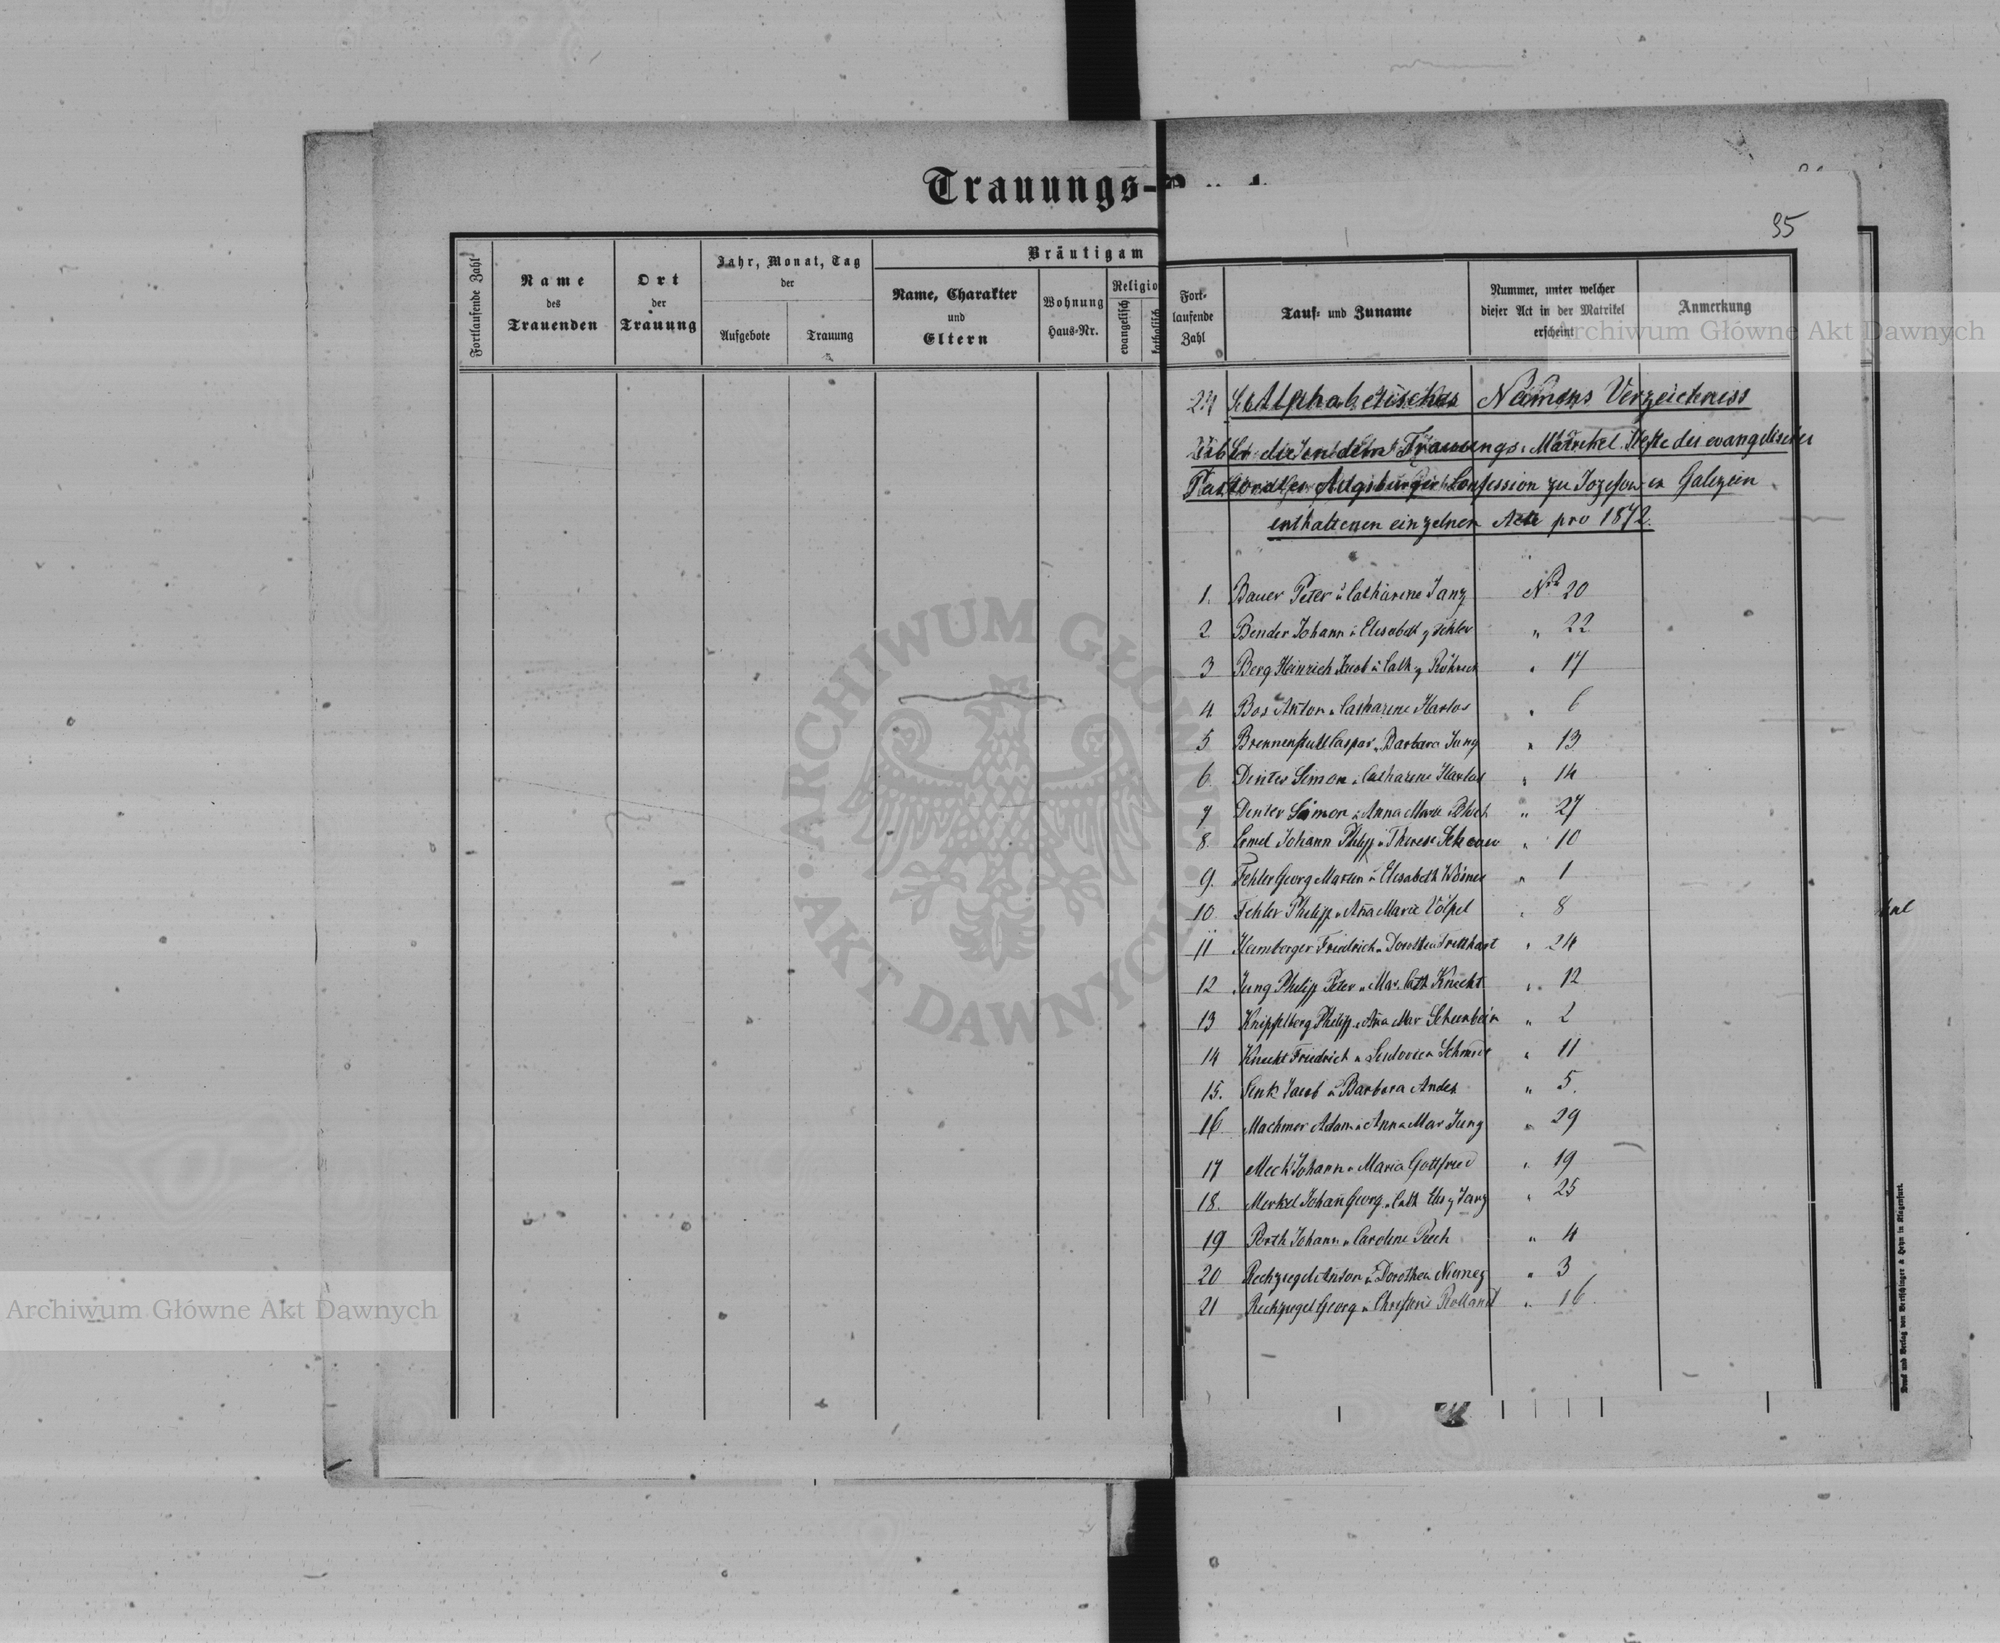 Trauungs-
Fortlaufende Zahl
Name
des
Trauenden
Ort
der
Trauung
Jahr, Monat, Tag
der
Aufgebote
Trauung
Bräutigam
Name, Charakter
und
Eltern
Wohnung
Haus-Nr.
Religio
evangelisch
katholisch
35
Fort-
laufende
Zahl
Tauf- und Zuname
Nummer, unter welcher
dieser Act in der Matrikel
erscheint
Anmerkung
Alphabetisches Namens Verzeichniss
Über die in dem Trauungs-Matrikel Hefte des evangelischen
Pastorates Augsburger Confession zu Jozefow in Galizien
enthaltenen einzelnen Acte pro 1872.
1. Bauer Peter u Catharine Janz Nr 20
2 Bender Johann u Elisabet g Fehler " 22
3 Berg Heinrich Jacob u Cath. g " 17
4 Bos Anton u Catharine Harlos " 6
5 Brennenstuhl Caspar u Barbara Jung " 13
6 Dinter Simon u Catharine Harlos " 14
7 Denter Simon u Anna Marie " 27
8 Johann Philipp u Therese " 10
9. Fehler Georg Martin u Elisabeth " 1
10 Fehler Philipp u Aña Marie Völpel " 8
11 Heimberger Friedrich u Dorothea " 24
12 Jung Philipp Peter u Mar. Cath Knecht " 12
13 Knipfelberg Philipp u Aña Mar " 2
14 Knecht Friedrich u Ludovica Schmidt " 11
15. Link Jacob u Barbara Andes " 5.
16 Machmer Adam u Anna Mar Jung " 29
17 Meck Johann u Maria Gottfried " 19
18. Merkel Johañ Georg u Cath Elis g Janz " 25
19 Porth Johann u Caroline " 4
20 Rechziegel Anton u Dorothea Niemez " 3
21 Rechziegel Georg u Christine Rolland " 16
Druck und Verlag von Bertschinger & Heyn in Klagenfurt.
Archiwum Główne Akt Dawnych
Archiwum Główne Akt Dawnych
ARCHIWUM GŁÓWNE AKT DAWNYCH